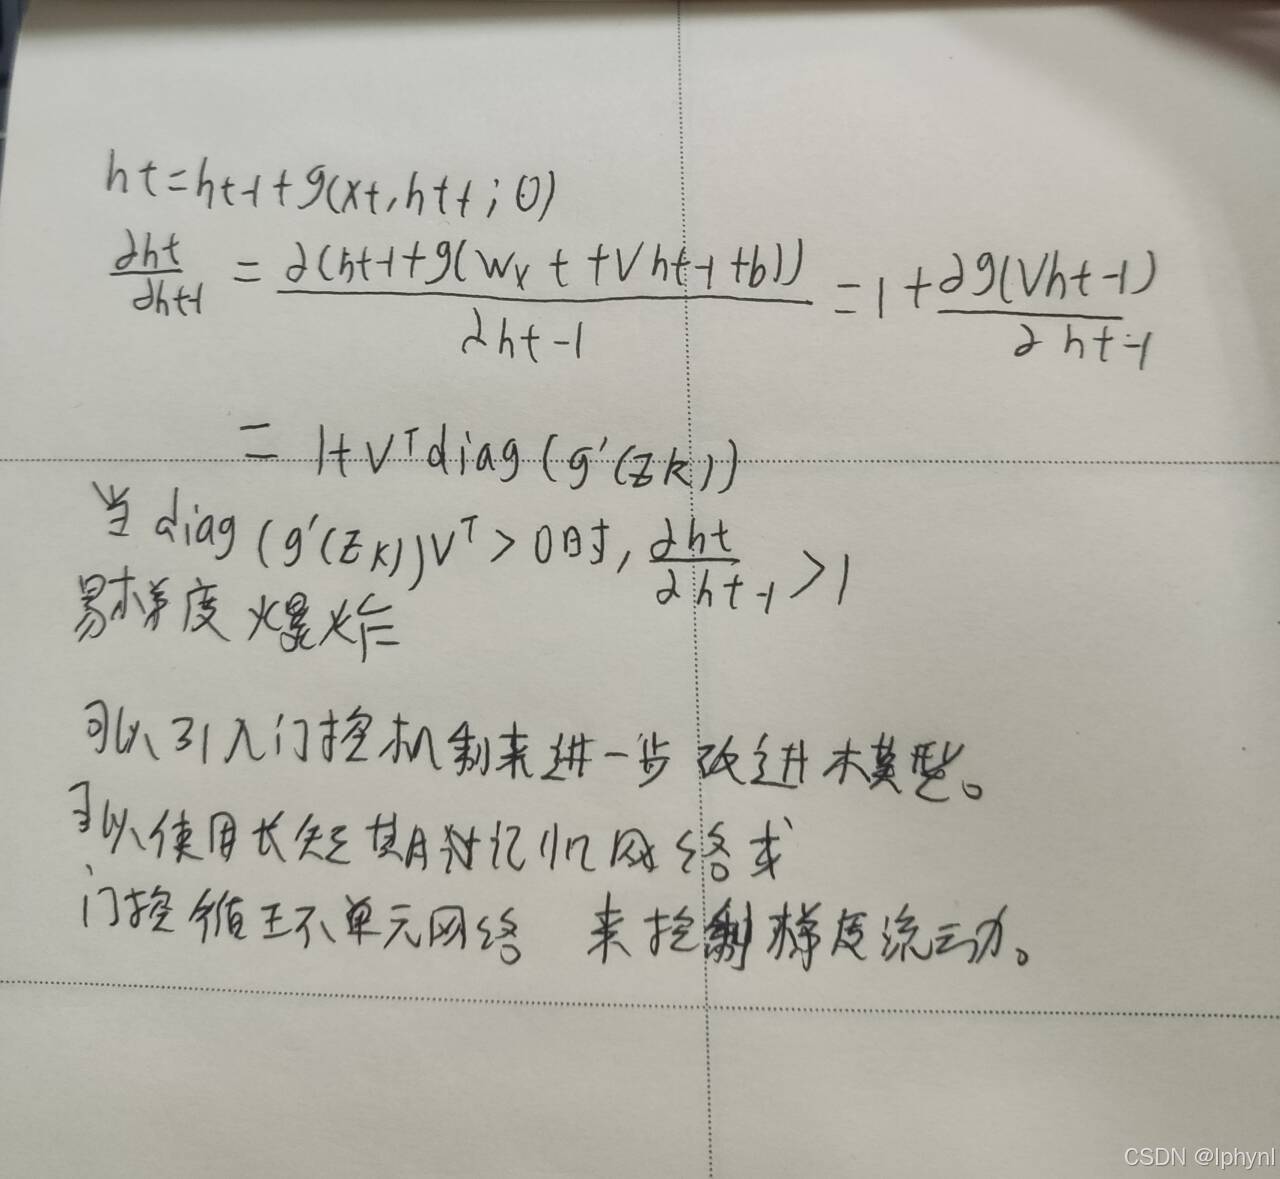 ht=ht-1+g(xt,ht-1;θ)
∂ht/∂ht-1 = ∂(ht-1+g(Wxt+Vht-1+b))/∂ht-1 = 1+∂g(Vht-1)/∂ht-1
= 1+V^T diag(g'(zk))
当diag(g'(zk))V^T>0时,∂ht/∂ht-1>1
易梯度爆炸
可以引入门控机制来进一步改进模型。
可以使用长短期记忆网络或
门控循环单元网络 来控制梯度流动。
CSDN @lphynl